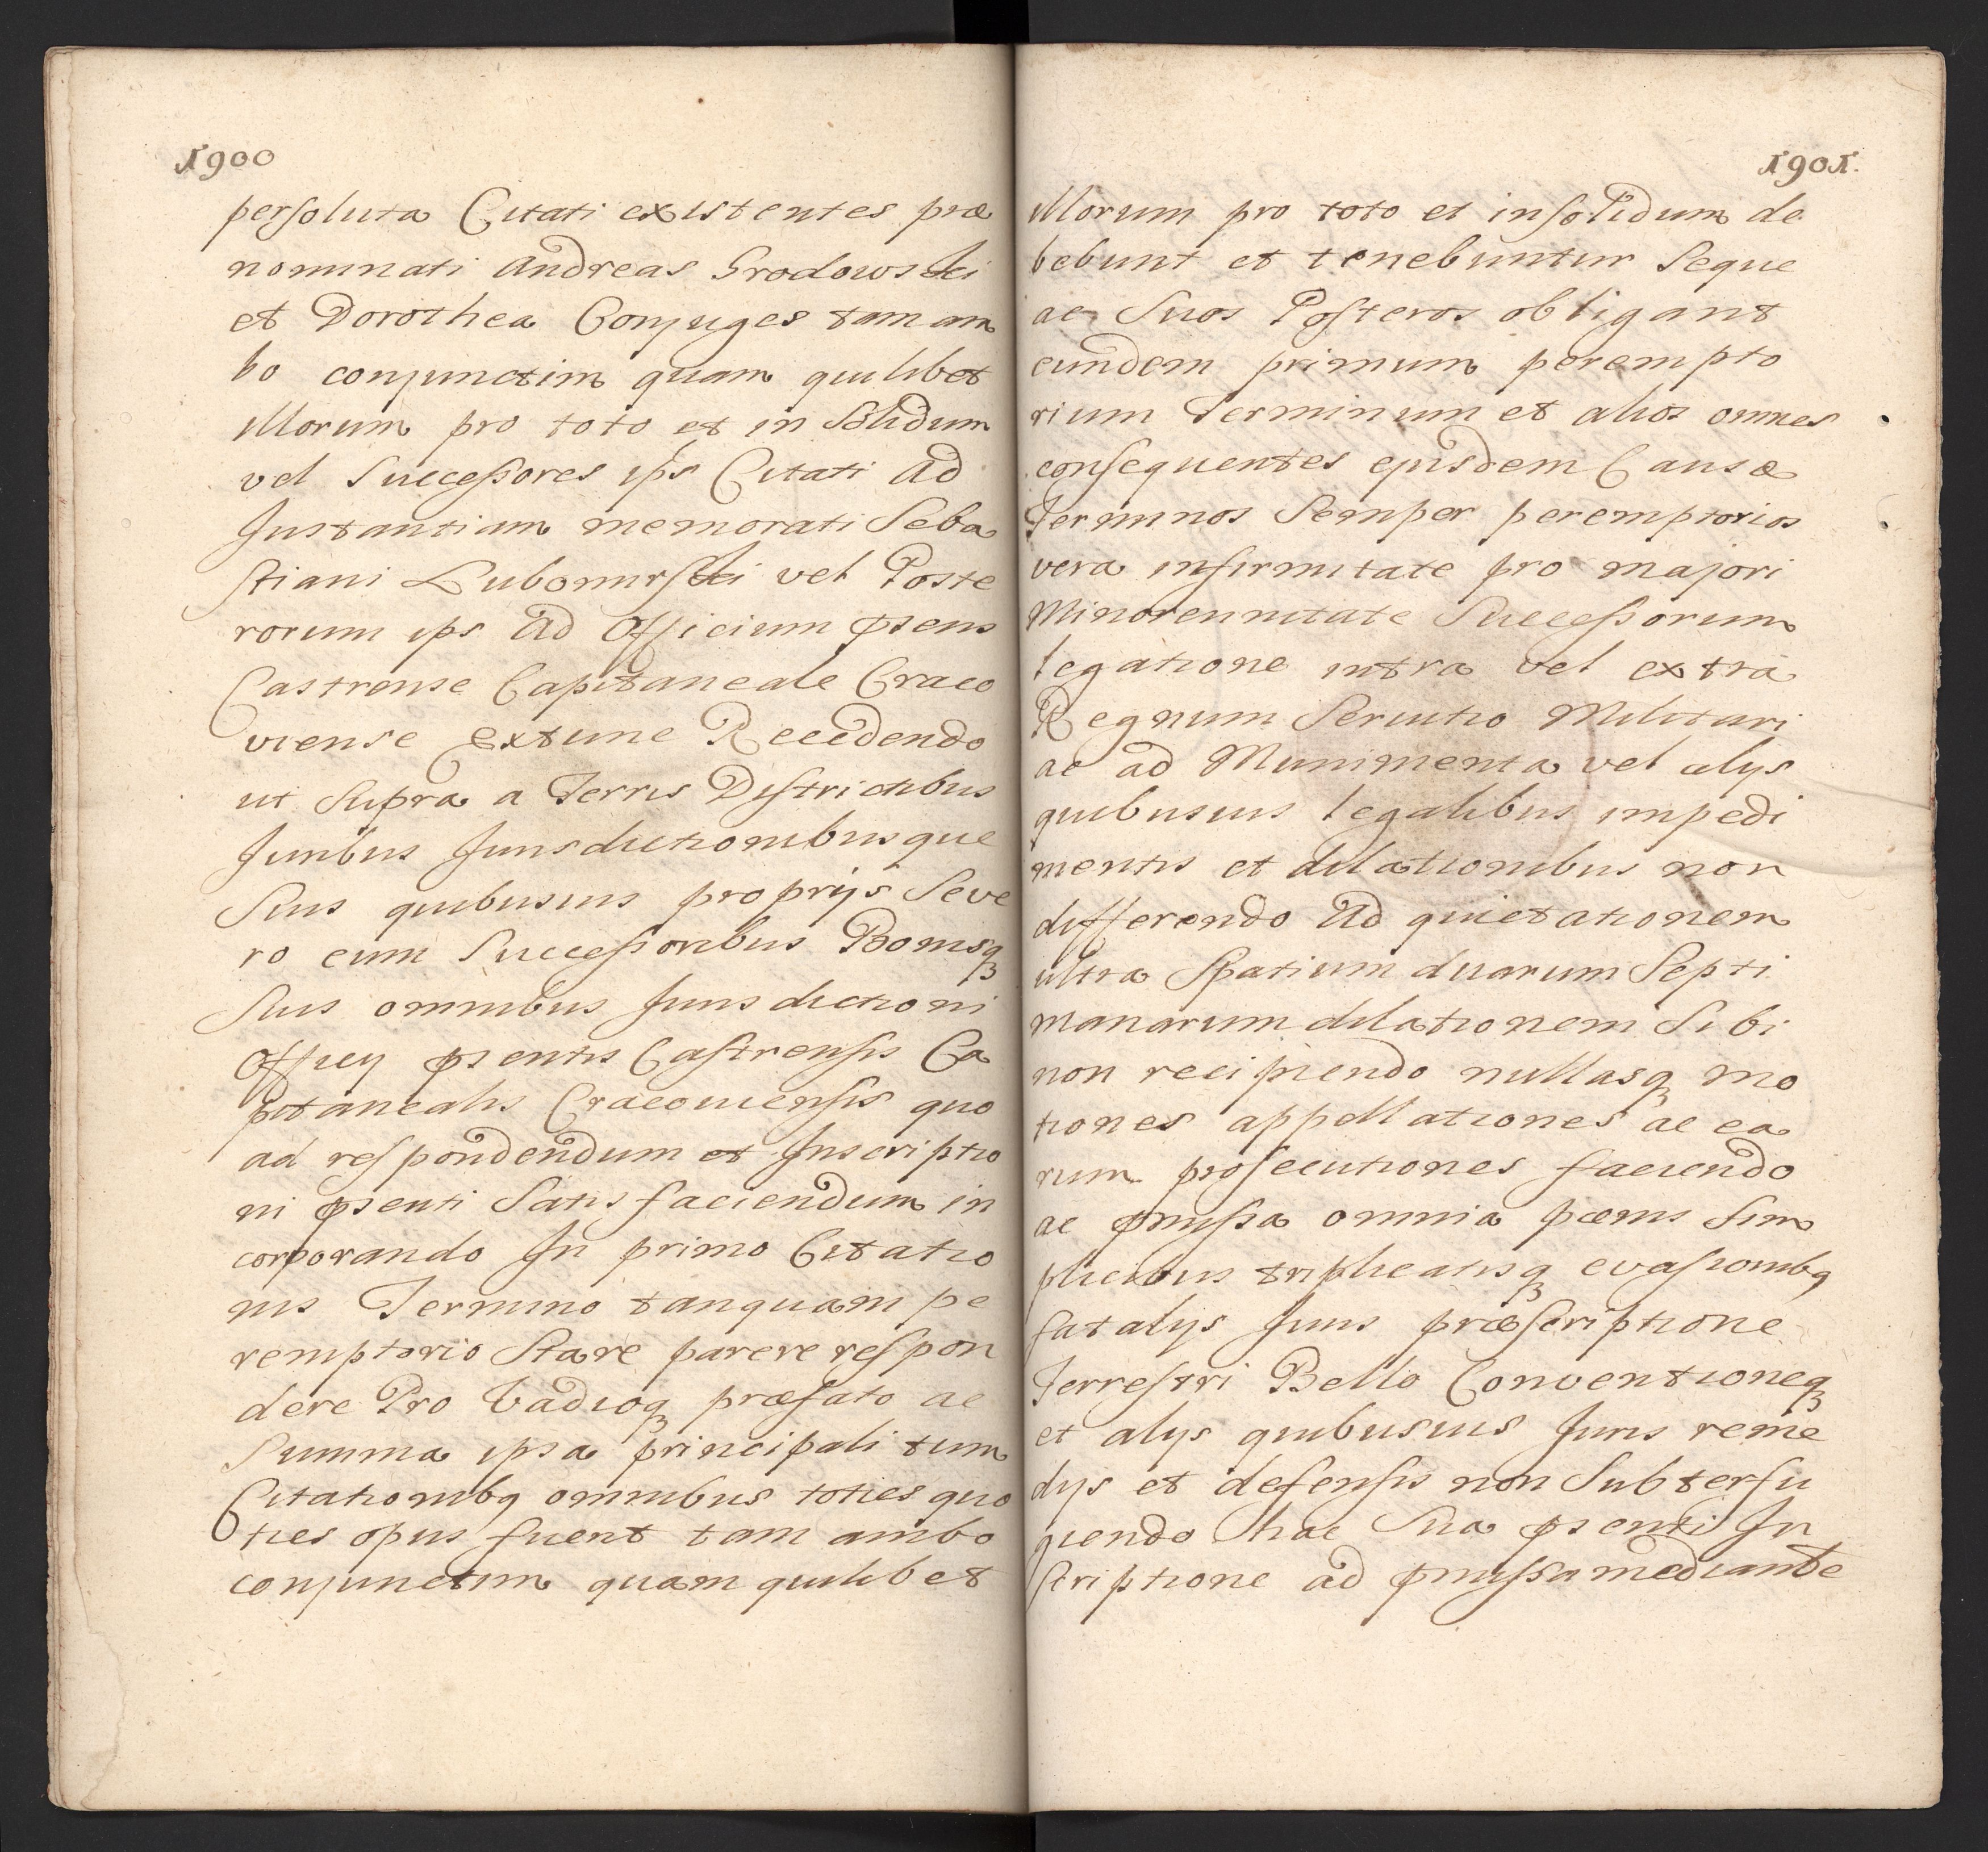 1900
persoluta Citati existentes præ
nominati Andreas Grodowski
et Dorothea Conjuges tam am
bo conjunctim quam quilibet
illorum pro toto et in Solidum
vel Successores ips Citati Ad
Instantiam memorati Seba
stiani Lubomirski vel Poste
rorum ips Ad Officium psens
Castrense Capitaneale Craco
viense Extunc Recedendo
ut Supra a Terris Districtibus
Juribus Jurisdictionibusque
Suis quibusvis proprijs Seve
ro cum Successoribus Bonisq
Suis omnibus Jurisdictioni
Officy psentis Castrensis Ca
pitanealis Cracoviensis quo
ad respondendum et Inscriptio
ni psenti Satisfaciendum in
corporando In primo Citatio
nis Termino tanquam pe
remptorio Stare parere respon
dere Pro Vadioq præfato ac
Summa ipsa principali tum
Citationibq omnibus toties quo
ties opus fuerit tam ambo
conjunctim quam quilibet
1901.
illorum pro toto et insolidum de
bebunt et tenebuntur Seque
ac Suos Posteros obligant
eundem primum perempto
rium Terminum et alios omnes
consequentes ejusdem Causæ
Terminos Semper peremptorios
vera infirmitate pro majori
Minorennitate Successorum
legatione intra vel extra
Regnum Servitio Militari
ac ad Munimenta vel alys
quibusvis legalibus impedi
mentis et dilationibus non
differendo Ad quietationem
ultra Spatium duarum Septi
manarum dilationem Sibi
non recipiendo nullasq mo
tiones appellationes ac ea
rum prosecutiones faciendo
ac pmissa omnia pænis Sim
plicibus triplicatisq evasionibq
fatalys Juris præscriptione
Terrestri Bello Conventioneq
et alys quibusvis Juris reme
dys et defensis non Subterfu
giendo hac Sua psenti In
scriptione ad pmissa mediante